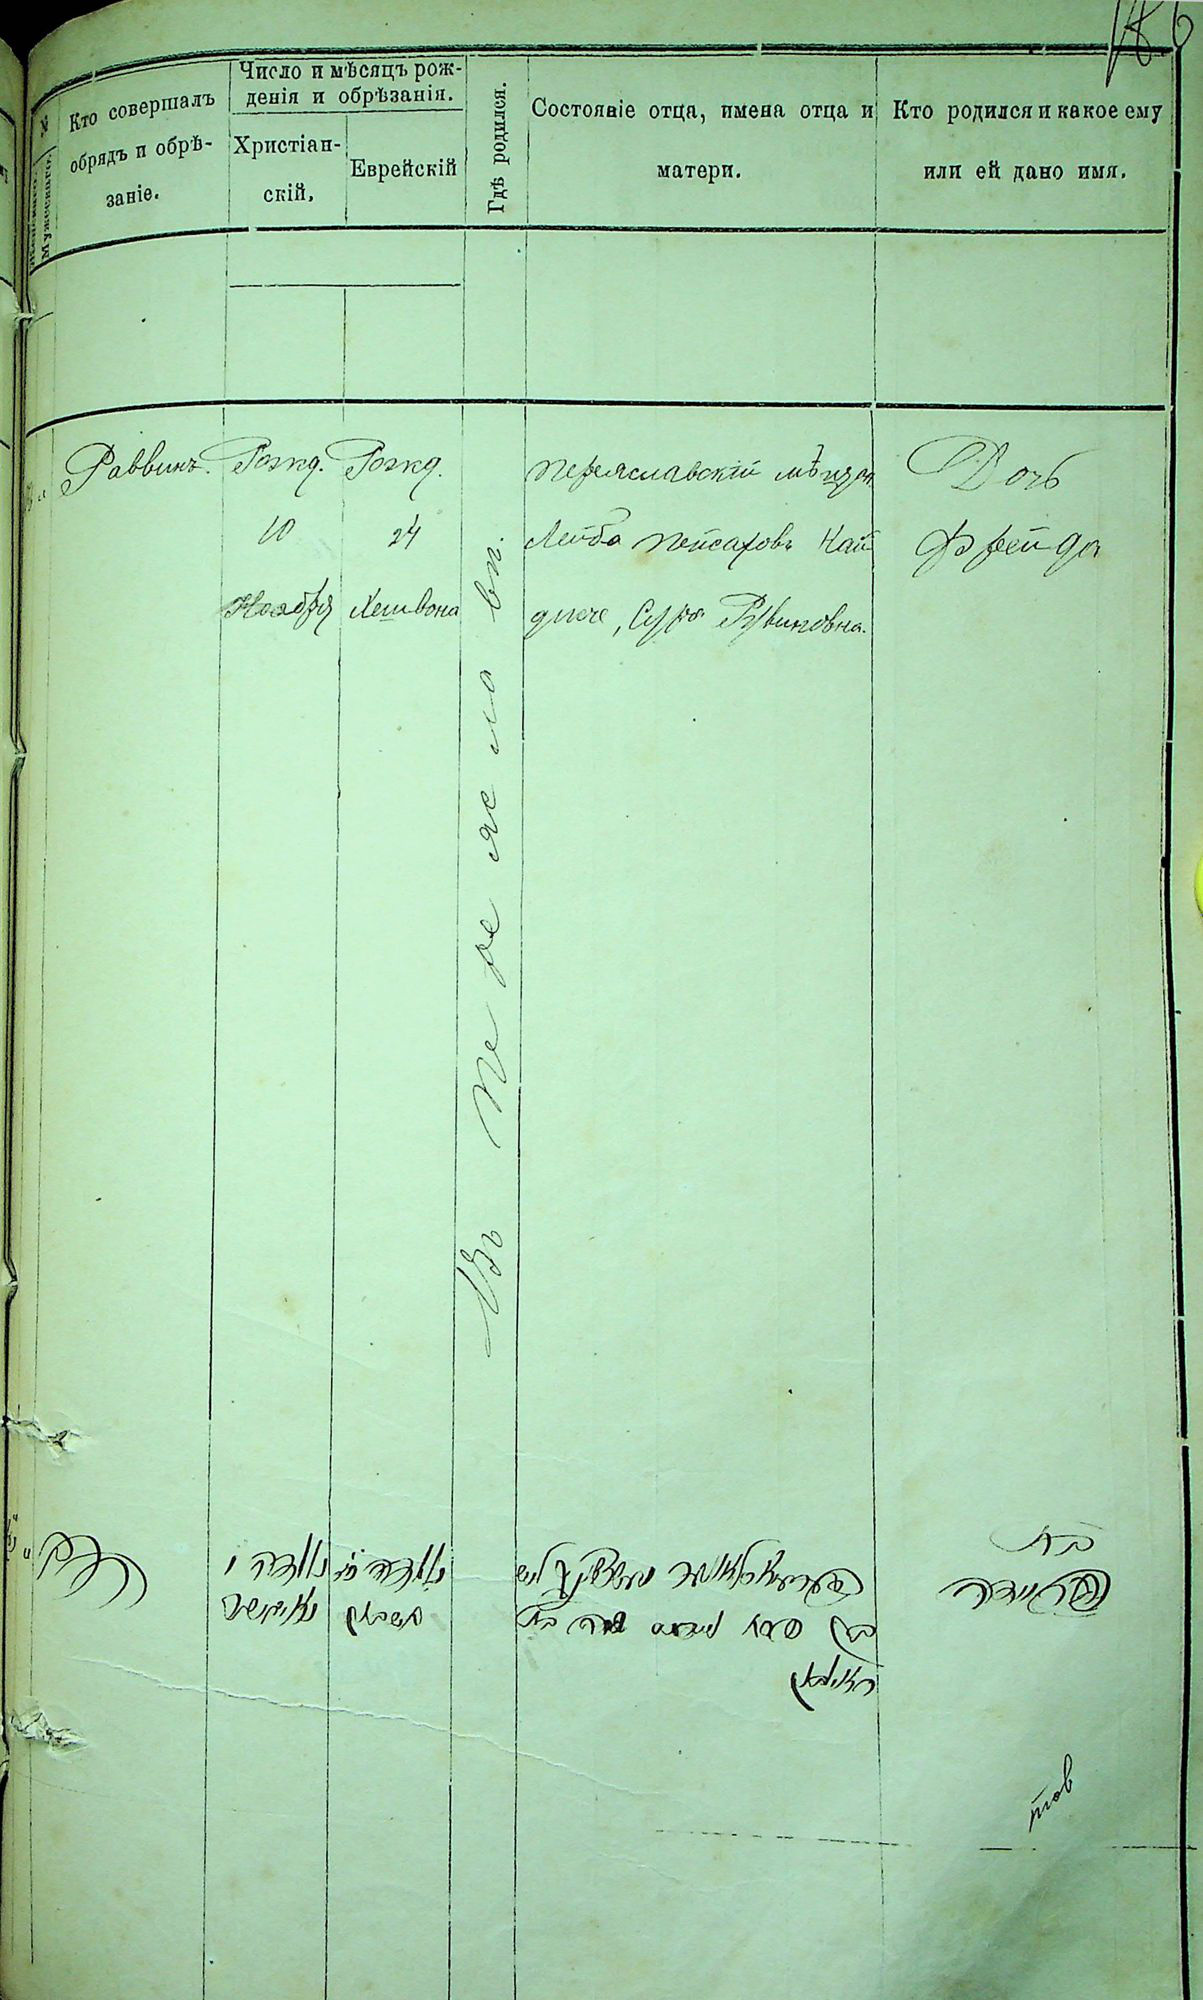 Женскаго.
Мужескаго.
Кто совершалъ
обрядъ и обрѣ-
заніе.
Число и мѣсяцъ рож-
денія и обрѣзанія.
Христіан-
скій,
Еврейскій
Гдѣ родился.
Состояніе отца, имена отца и
матери.
Кто родился и какое ему
или ей дано имя.
Раввинъ.
Рожд.
10
Ноября
Рожд.
24
Хешвона
Въ Переяславѣ.
Переяславскій мѣщан
Лейба Пейсаховъ Кай
, Сура Рувиновна.
Дочь
Фрейда
נולדה י
נולדה
חשבון
בן פסח שרה בת
ראובן
בת
פריידה